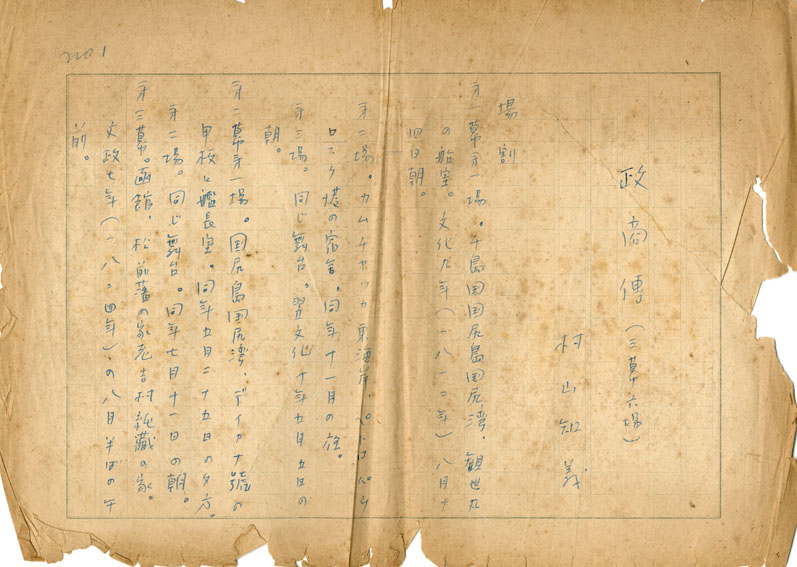 no 1
政商傳（三幕十六場）
村山知義
場割
第一幕第一場。千島国国尻島国尻湾、観世丸
の船室。文化九年（一八一二年）八月十
四日朝。
第二場。カムチャッカ東海岸、ペトロパウ
ロスク港の宿舎。同年十一月の夜。
第三場。同じ舞台。翌文化十年五月五日の
朝。
第二幕第一場。国尻島国尻湾、デイアナ號の
甲板と艦長室。同年五月二十五日の夕方。
第二場。同じ舞台。同年七月十一日の朝。
第三幕。函館、松前藩の家老吉村純藏の家。
文政七年（一八二四年）の八月半ばの午
前。